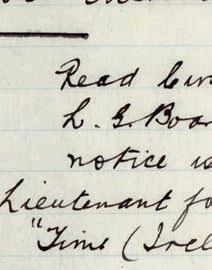 Read Cir
L. G. Boar
notice is
Lieutenant fo
"Time (Irel